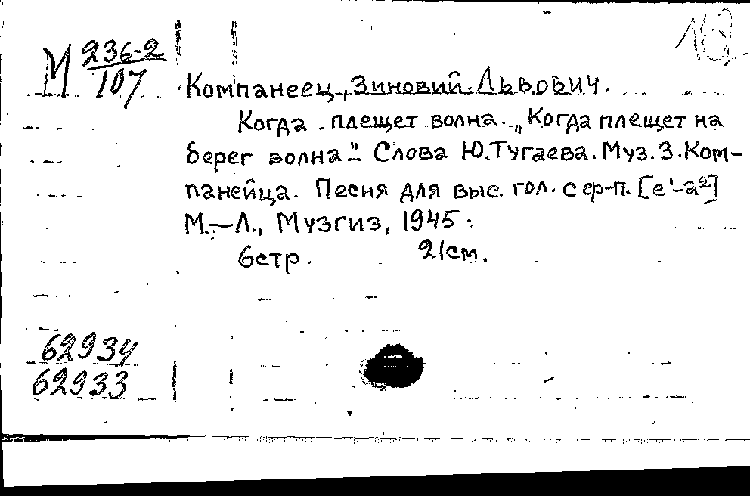 М 236-2
107
Компанеец, Зиновий Львович.
Когда плещет волна. „Когда плещет на
берег волна". Слова Ю. Тугаева. Муз. З. Ком-
панейца. Песня для выс. гол. с ф-п. [е¹-а²]
М.–Л., Музгиз, 1945.
6 стр. 21 см.
62934
62933